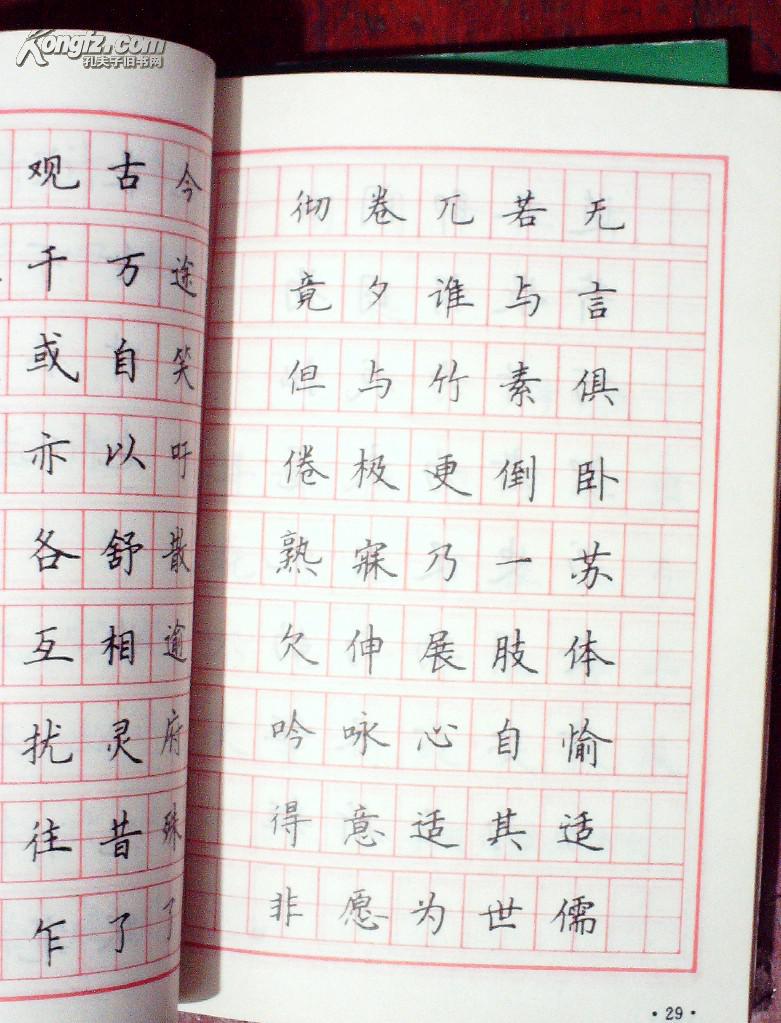 Kongfz.com
孔夫子旧书网
观古今
千万途
或自笑
亦以吁
各舒散
互相逾
扰灵府
往昔殊
乍了了
彻卷兀若无
竟夕谁与言
但与竹素俱
倦极更倒卧
熟寐乃一苏
欠伸展肢体
吟咏心自愉
得意适其适
非愿为世儒
·29·